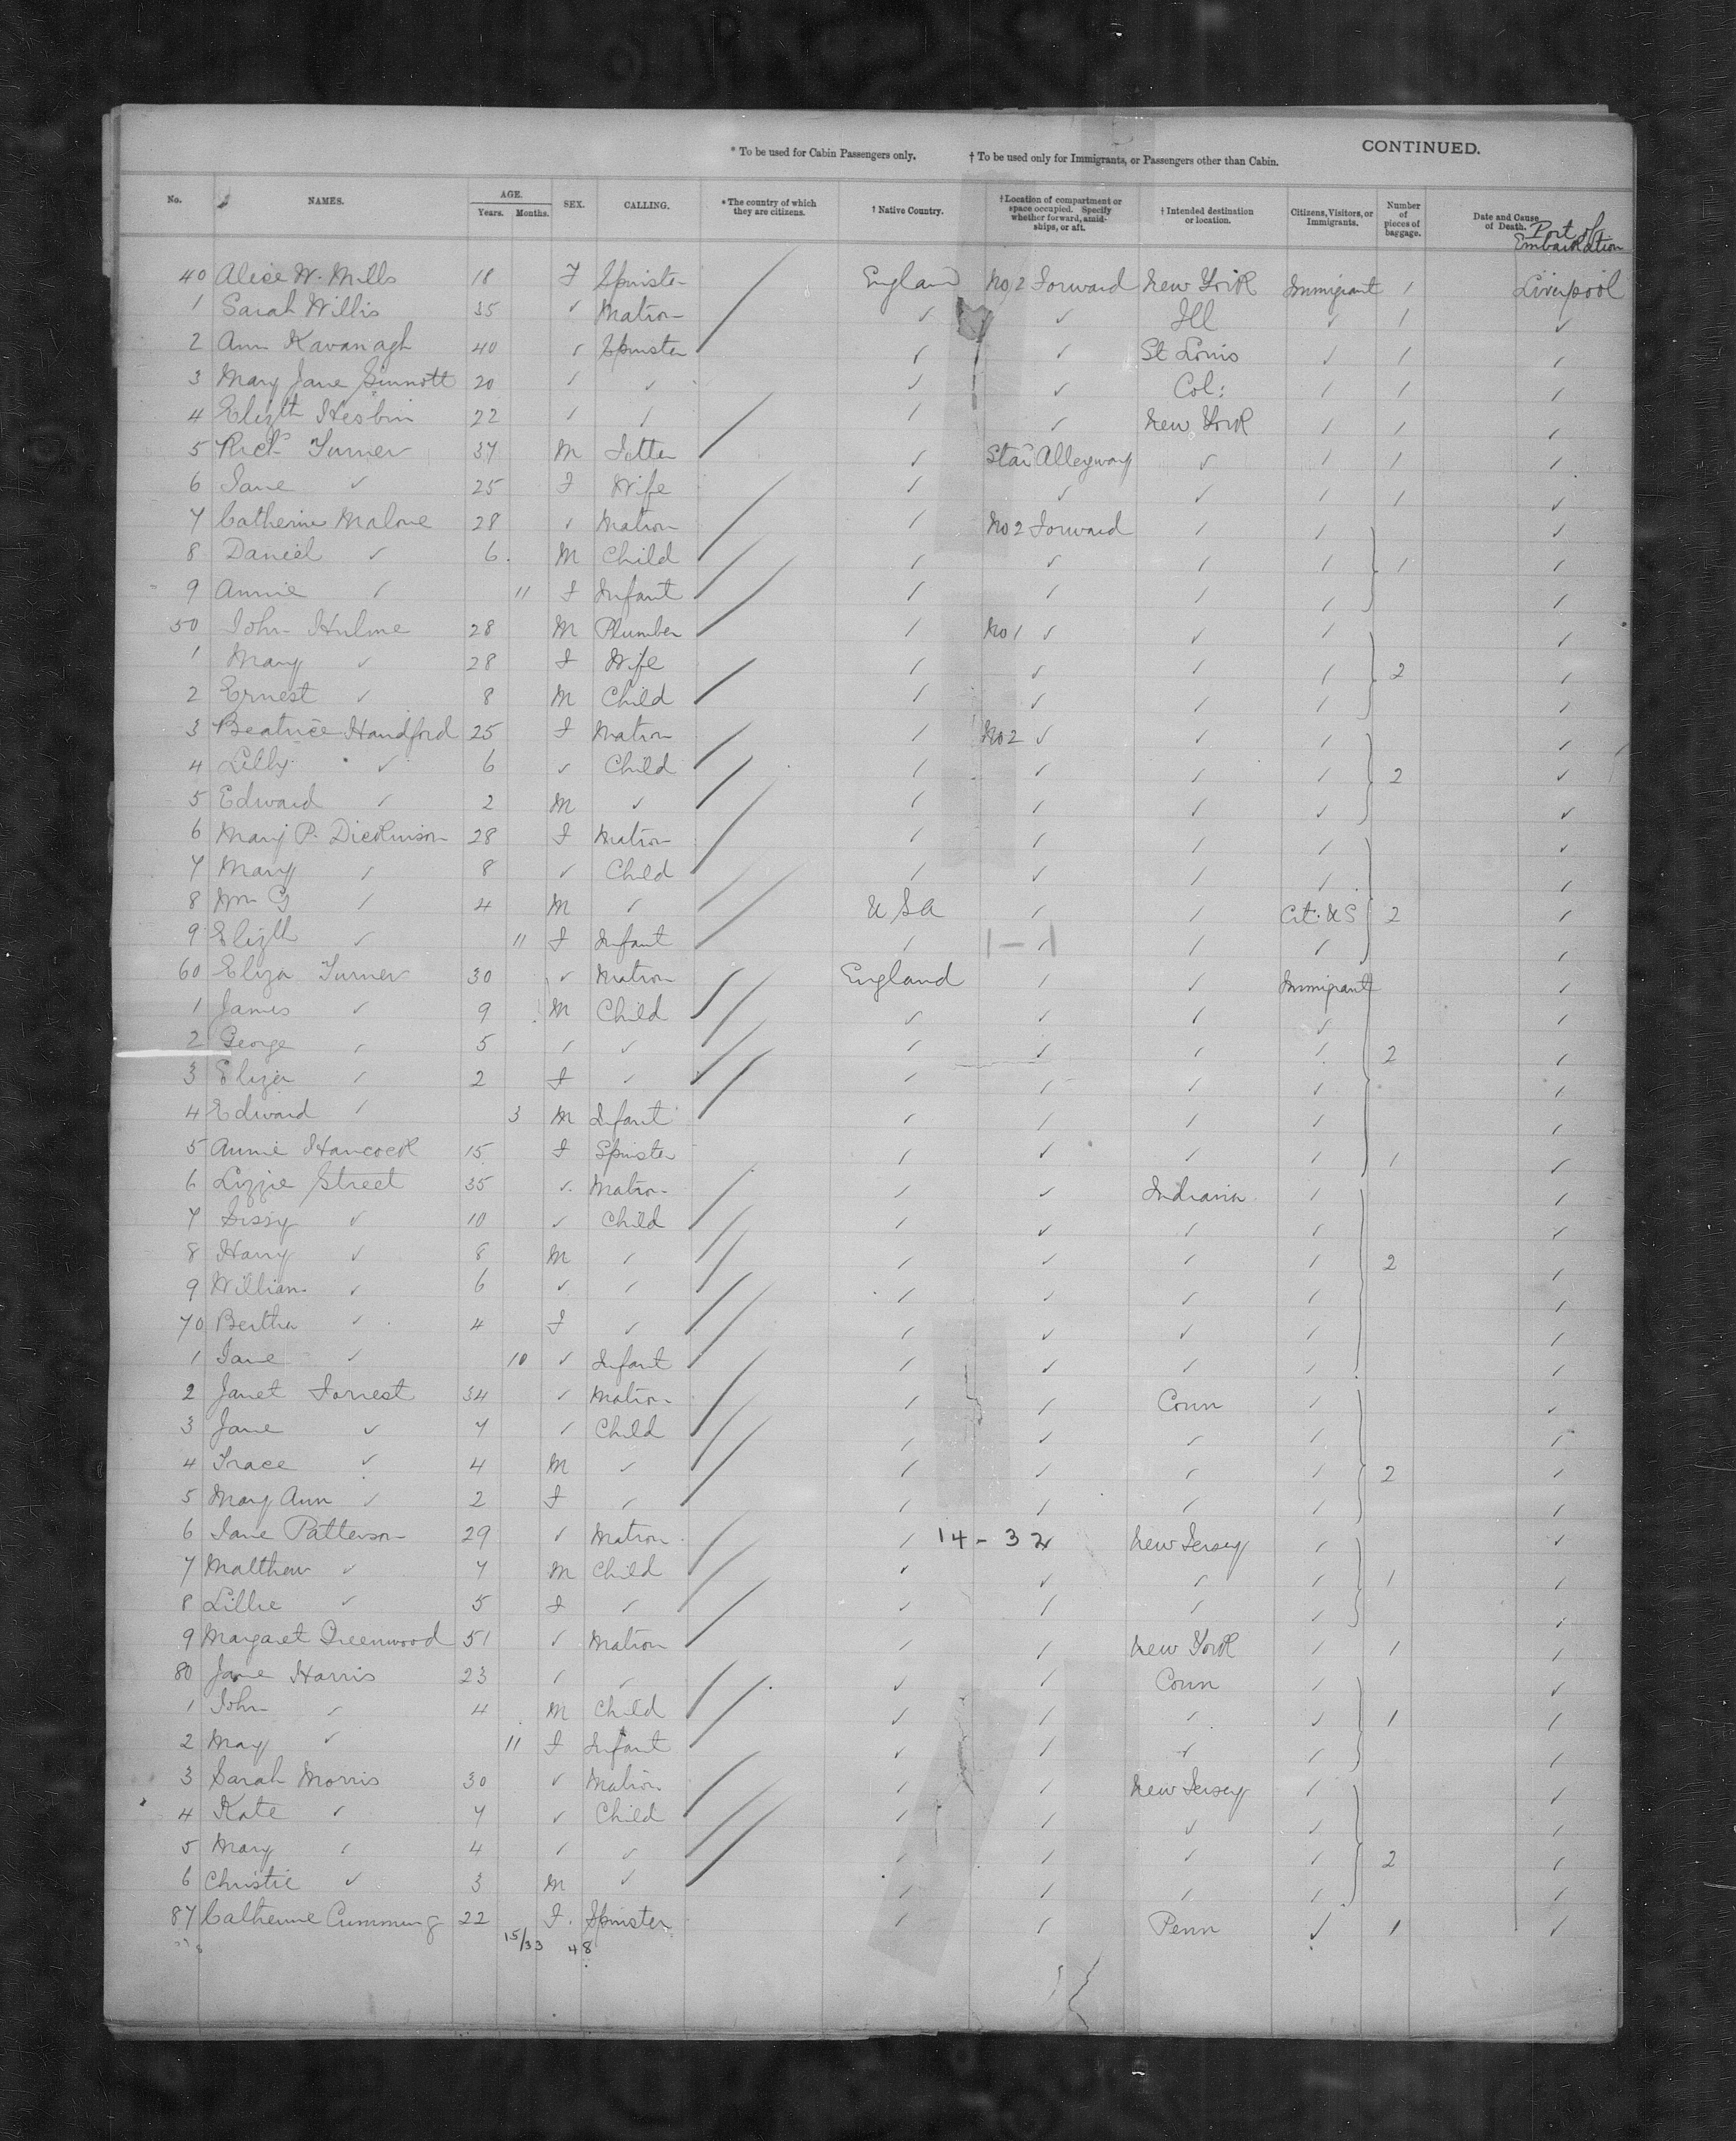 CONTINUED.
* To be used for Cabin Passengers only. † To be used only for Immigrants, or Passengers other than Cabin.
No. NAMES. AGE. Years. Months. SEX. CALLING. * The country of which they are citizens. † Native Country. † Location of compartment or space occupied. Specify whether forward, amidships, or aft. † Intended destination or location. Citizens, Visitors, or Immigrants. Number of pieces of baggage. Date and Cause of Death. Port of Embarkation
40 Alice W. Mills 18 F Spinster England No 2 Forward New York Immigrant 1 Liverpool
1 Sarah Willis 35 ✓ Matron ✓ ✓ Ill ✓ 1 ✓
2 Ann Kavanagh 40 ✓ Spinster ✓ ✓ St Louis ✓ 1 ✓
3 Mary Jane Sinnott 20 ✓ ✓ ✓ ✓ Col: ✓ 1 ✓
4 Elizth Hesbin 22 ✓ ✓ ✓ ✓ New York ✓ 1 ✓
5 Richd Turner 37 M Fitter ✓ Star Alleyway ✓ ✓ 1 ✓
6 Jane ✓ 25 F Wife ✓ ✓ ✓ ✓ 1 ✓
7 Catherine Malone 28 ✓ Matron ✓ No 2 Forward ✓ ✓ ✓
8 Daniel ✓ 6 M Child ✓ ✓ ✓ ✓ 1 ✓
9 Annie ✓ 11 F Infant ✓ ✓ ✓ ✓ ✓
50 John Hulme 28 M Plumber ✓ No 1 ✓ ✓ ✓ ✓
1 Mary ✓ 28 F Wife ✓ ✓ ✓ ✓ 2 ✓
2 Ernest ✓ 8 M Child ✓ ✓ ✓ ✓ ✓
3 Beatrice Handford 25 F Matron ✓ No 2 ✓ ✓ ✓ ✓
4 Lilly ✓ 6 ✓ Child ✓ ✓ ✓ ✓ 2 ✓
5 Edward ✓ 2 M ✓ ✓ ✓ ✓ ✓ ✓
6 Mary P. Dickinson 28 F Matron ✓ ✓ ✓ ✓ ✓
7 Mary ✓ 8 ✓ Child ✓ ✓ ✓ ✓ ✓
8 Wm G ✓ 4 M ✓ U S A ✓ ✓ Cit. U S 2 ✓
9 Elizth ✓ 11 F Infant ✓ 1-1 ✓ ✓ ✓
60 Eliza Turner 30 ✓ Matron England ✓ ✓ Immigrant ✓
1 James ✓ 9 M Child ✓ ✓ ✓ ✓ ✓
2 George ✓ 5 ✓ ✓ ✓ ✓ ✓ ✓ 2 ✓
3 Eliza ✓ 2 F ✓ ✓ ✓ ✓ ✓ ✓
4 Edward ✓ 3 M Infant ✓ ✓ ✓ ✓ ✓
5 Annie Hancock 15 F Spinster ✓ ✓ ✓ ✓ 1 ✓
6 Lizzie Street 35 ✓ Matron ✓ ✓ Indiana ✓ ✓
7 Sissy ✓ 10 ✓ Child ✓ ✓ ✓ ✓ ✓
8 Harry ✓ 8 M ✓ ✓ ✓ ✓ ✓ 2 ✓
9 William ✓ 6 ✓ ✓ ✓ ✓ ✓ ✓ ✓
70 Bertha ✓ 4 F ✓ ✓ ✓ ✓ ✓ ✓
1 Jane ✓ 10 ✓ Infant ✓ ✓ ✓ ✓ ✓
2 Janet Forrest 34 ✓ Matron ✓ ✓ Conn ✓ ✓
3 Jane ✓ 7 ✓ Child ✓ ✓ ✓ ✓ ✓
4 Trace ✓ 4 M ✓ ✓ ✓ ✓ ✓ 2 ✓
5 Mary Ann ✓ 2 F ✓ ✓ ✓ ✓ ✓ ✓
6 Jane Patterson 29 ✓ Matron ✓ 14 - 32 New Jersey ✓ ✓
7 Matthew ✓ 7 M Child ✓ ✓ ✓ ✓ 1 ✓
8 Lillie ✓ 5 F ✓ ✓ ✓ ✓ ✓ ✓
9 Margaret Greenwood 51 ✓ Matron ✓ ✓ New York ✓ 1 ✓
80 Jane Harris 23 ✓ ✓ ✓ ✓ Conn ✓ ✓
1 John ✓ 4 M Child ✓ ✓ ✓ ✓ 1 ✓
2 May ✓ 11 F Infant ✓ ✓ ✓ ✓ ✓
3 Sarah Morris 30 ✓ Matron ✓ ✓ New Jersey ✓ ✓
4 Kate ✓ 7 ✓ Child ✓ ✓ ✓ ✓ ✓
5 Mary ✓ 4 ✓ ✓ ✓ ✓ ✓ ✓ 2 ✓
6 Christie ✓ 3 M ✓ ✓ ✓ ✓ ✓ ✓
87 Catherine Cumming 22 F. Spinster ✓ ✓ Penn ✓ 1 ✓
15/33 48